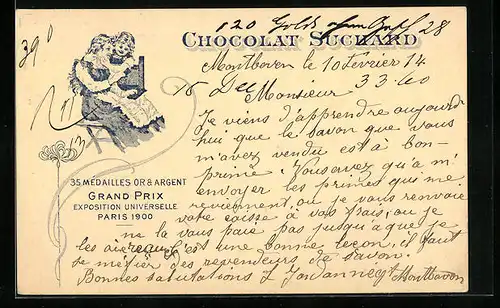 120 Gold 28
CHOCOLAT SUCHARD
390
Montbovon le 10 février 14
33.60
Monsieur
Je viens d'apprendre aujourd
hui que le savon que vous
m'avez vendu est à bon-
prime. Vous avez qu'a m'
envoyer les primes qui me
reviennent, ou je vous renvoie
votre caisse à vos frais, ou je
ne la vous paie pas jusqu'à que je
les aie reçu, c'est une bonne leçon, il faut
se méfier des revendeurs de savon.
Bonnes salutations L Jordan négt Montbovon
13
35 MÉDAILLES OR & ARGENT
GRAND PRIX
EXPOSITION UNIVERSELLE
PARIS 1900